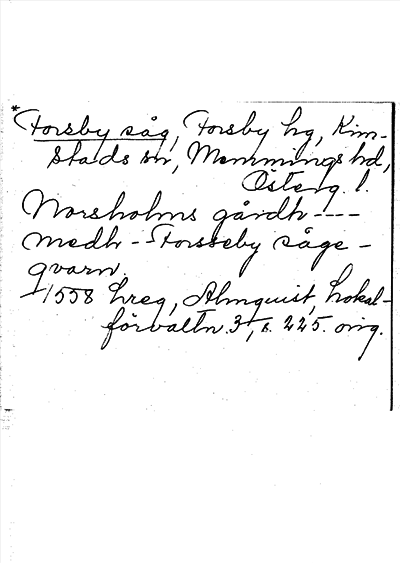 * Forsby såg, Forsby hg, Kim-
stads sn, Memmings hd,
Österg. l.
Norsholms gårdh ----
medh -- Forsseby såge-
qvarn.
1558 hreg, Almquist, Lokal-
förvaltn. 3, s. 225. orig.